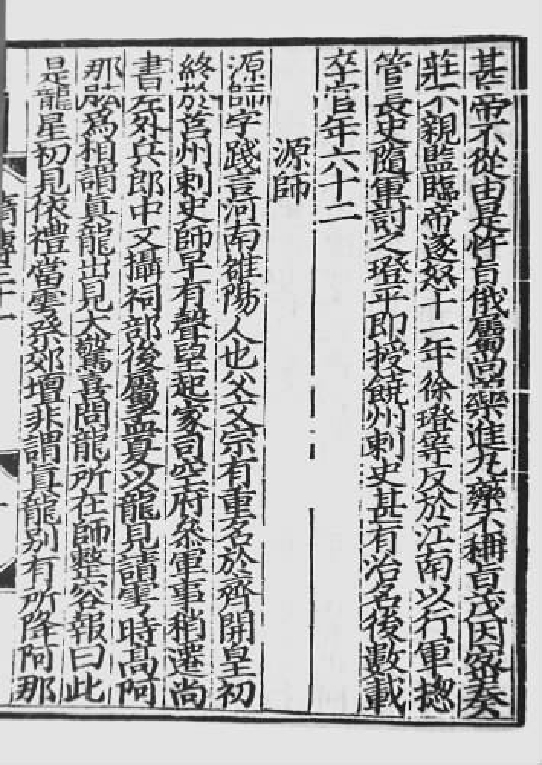 甚帝不從由是忤旨俄屬尚藥進丸藥不稱旨茂因密奏
莊不親監臨帝遂怒十一年徐璒等反於江南以行軍揔
管長史隨軍討之璒平即授饒州刺史甚有治名後數載
卒官年六十二
源師
源師字踐言河南雒陽人也父文宗有重名於齊開皇初
終於莒州刺史師早有聲望起家司空府叅軍事稍遷尚
書左外兵郎中又攝祠部後屬孟夏以龍見請雩時高阿
那肱爲相謂眞龍出見大驚喜問龍所在師整容報曰此
是龍星初見依禮當雩祭郊壇非謂眞龍別有所降阿那